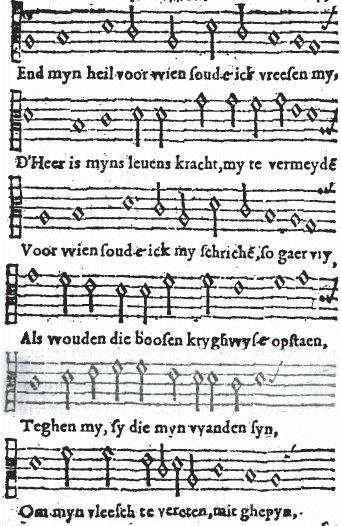 End myn heil voor wien soud-e ick vreesen my,
D'Heer is myns leuens kracht, my te vermeydē
Voor wien soud-e ick my schrickē, so gaer vry,
Als wouden die boosen kryghwyse opstaen,
Teghen my, sy die myn vyanden syn,
Om myn vleesch te vereten, mit ghepyn,